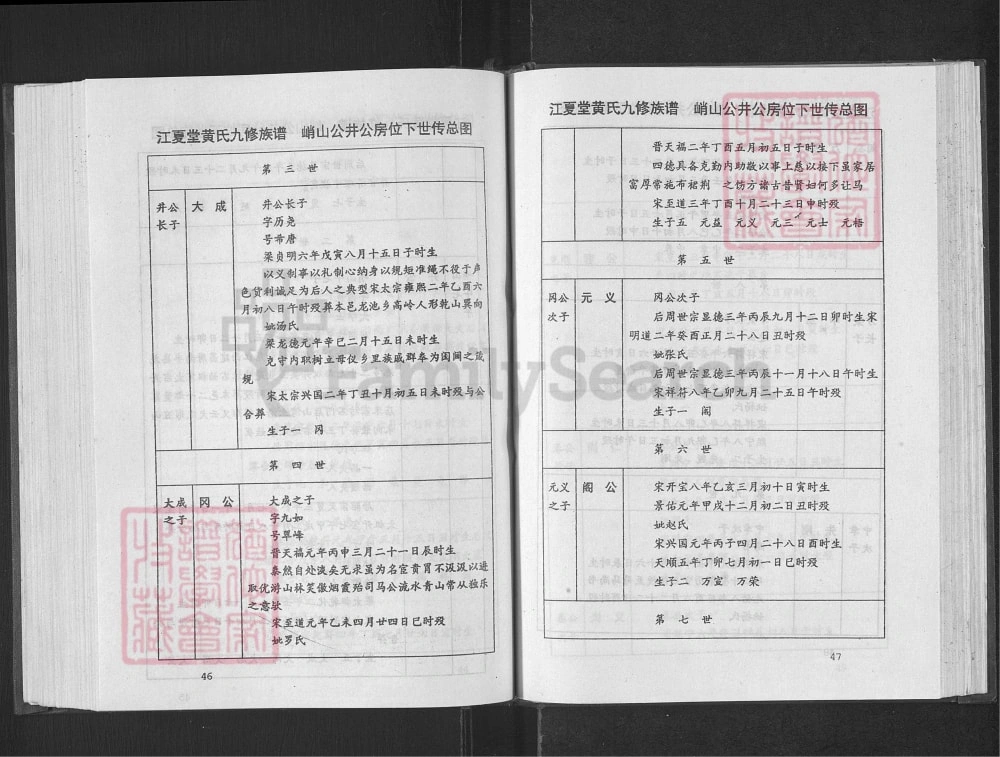 江夏堂黄氏九修族谱 峭山公井公房位下世传总图
第三世
井公长子
大成
井公长子
字历尧
号希唐
梁贞明六年戊寅八月十五日子时生
以义制事以礼制心纳身以规矩准绳不役于声
色货利诚足为后人之典型宋太宗雍熙二年乙酉六
月初八日午时殁葬本邑龙池乡高岭人形乾山巽向
妣汤氏
梁龙德元年辛巳二月十五日未时生
克守内职树立母仪乡里族戚群奉为闺阃之箴
规
宋太宗兴国二年丁丑十月初五日未时殁与公
合葬
生子一 冈
第四世
大成之子
冈公
大成之子
字九如
号翠峰
晋天福元年丙申三月二十一日辰时生
泰然自处淡矣无求虽为名宦贵胄不汲汲以进
取优游山林笑傲烟霞殆司马公流水青山常从独乐
之意欤
宋至道元年乙未四月廿四日巳时殁
妣罗氏
46
江夏堂黄氏九修族谱 峭山公井公房位下世传总图
晋天福二年丁酉五月初五日子时生
四德具备克勤内助敬以事上慈以接下虽家居
富厚常施布裙荆 之饬方诸古昔贤妇何多让焉
宋至道三年丁酉十月二十三日申时殁
生子五 元益 元义 元三 元士 元梧
第五世
冈公次子
元义
冈公次子
后周世宗显德三年丙辰九月十二日卯时生宋
明道二年癸酉正月二十八日丑时殁
妣张氏
后周世宗显德三年丙辰十一月十八日午时生
宋祥符八年乙卯九月二十五日午时殁
生子一 阁
第六世
元义之子
阁公
宋开宝八年乙亥三月初十日寅时生
景佑元年甲戌十二月初二日丑时殁
妣赵氏
宋兴国元年丙子四月二十八日酉时生
天顺五年丁卯七月初一日巳时殁
生子二 万宣 万荣
第七世
47
FamilySearch